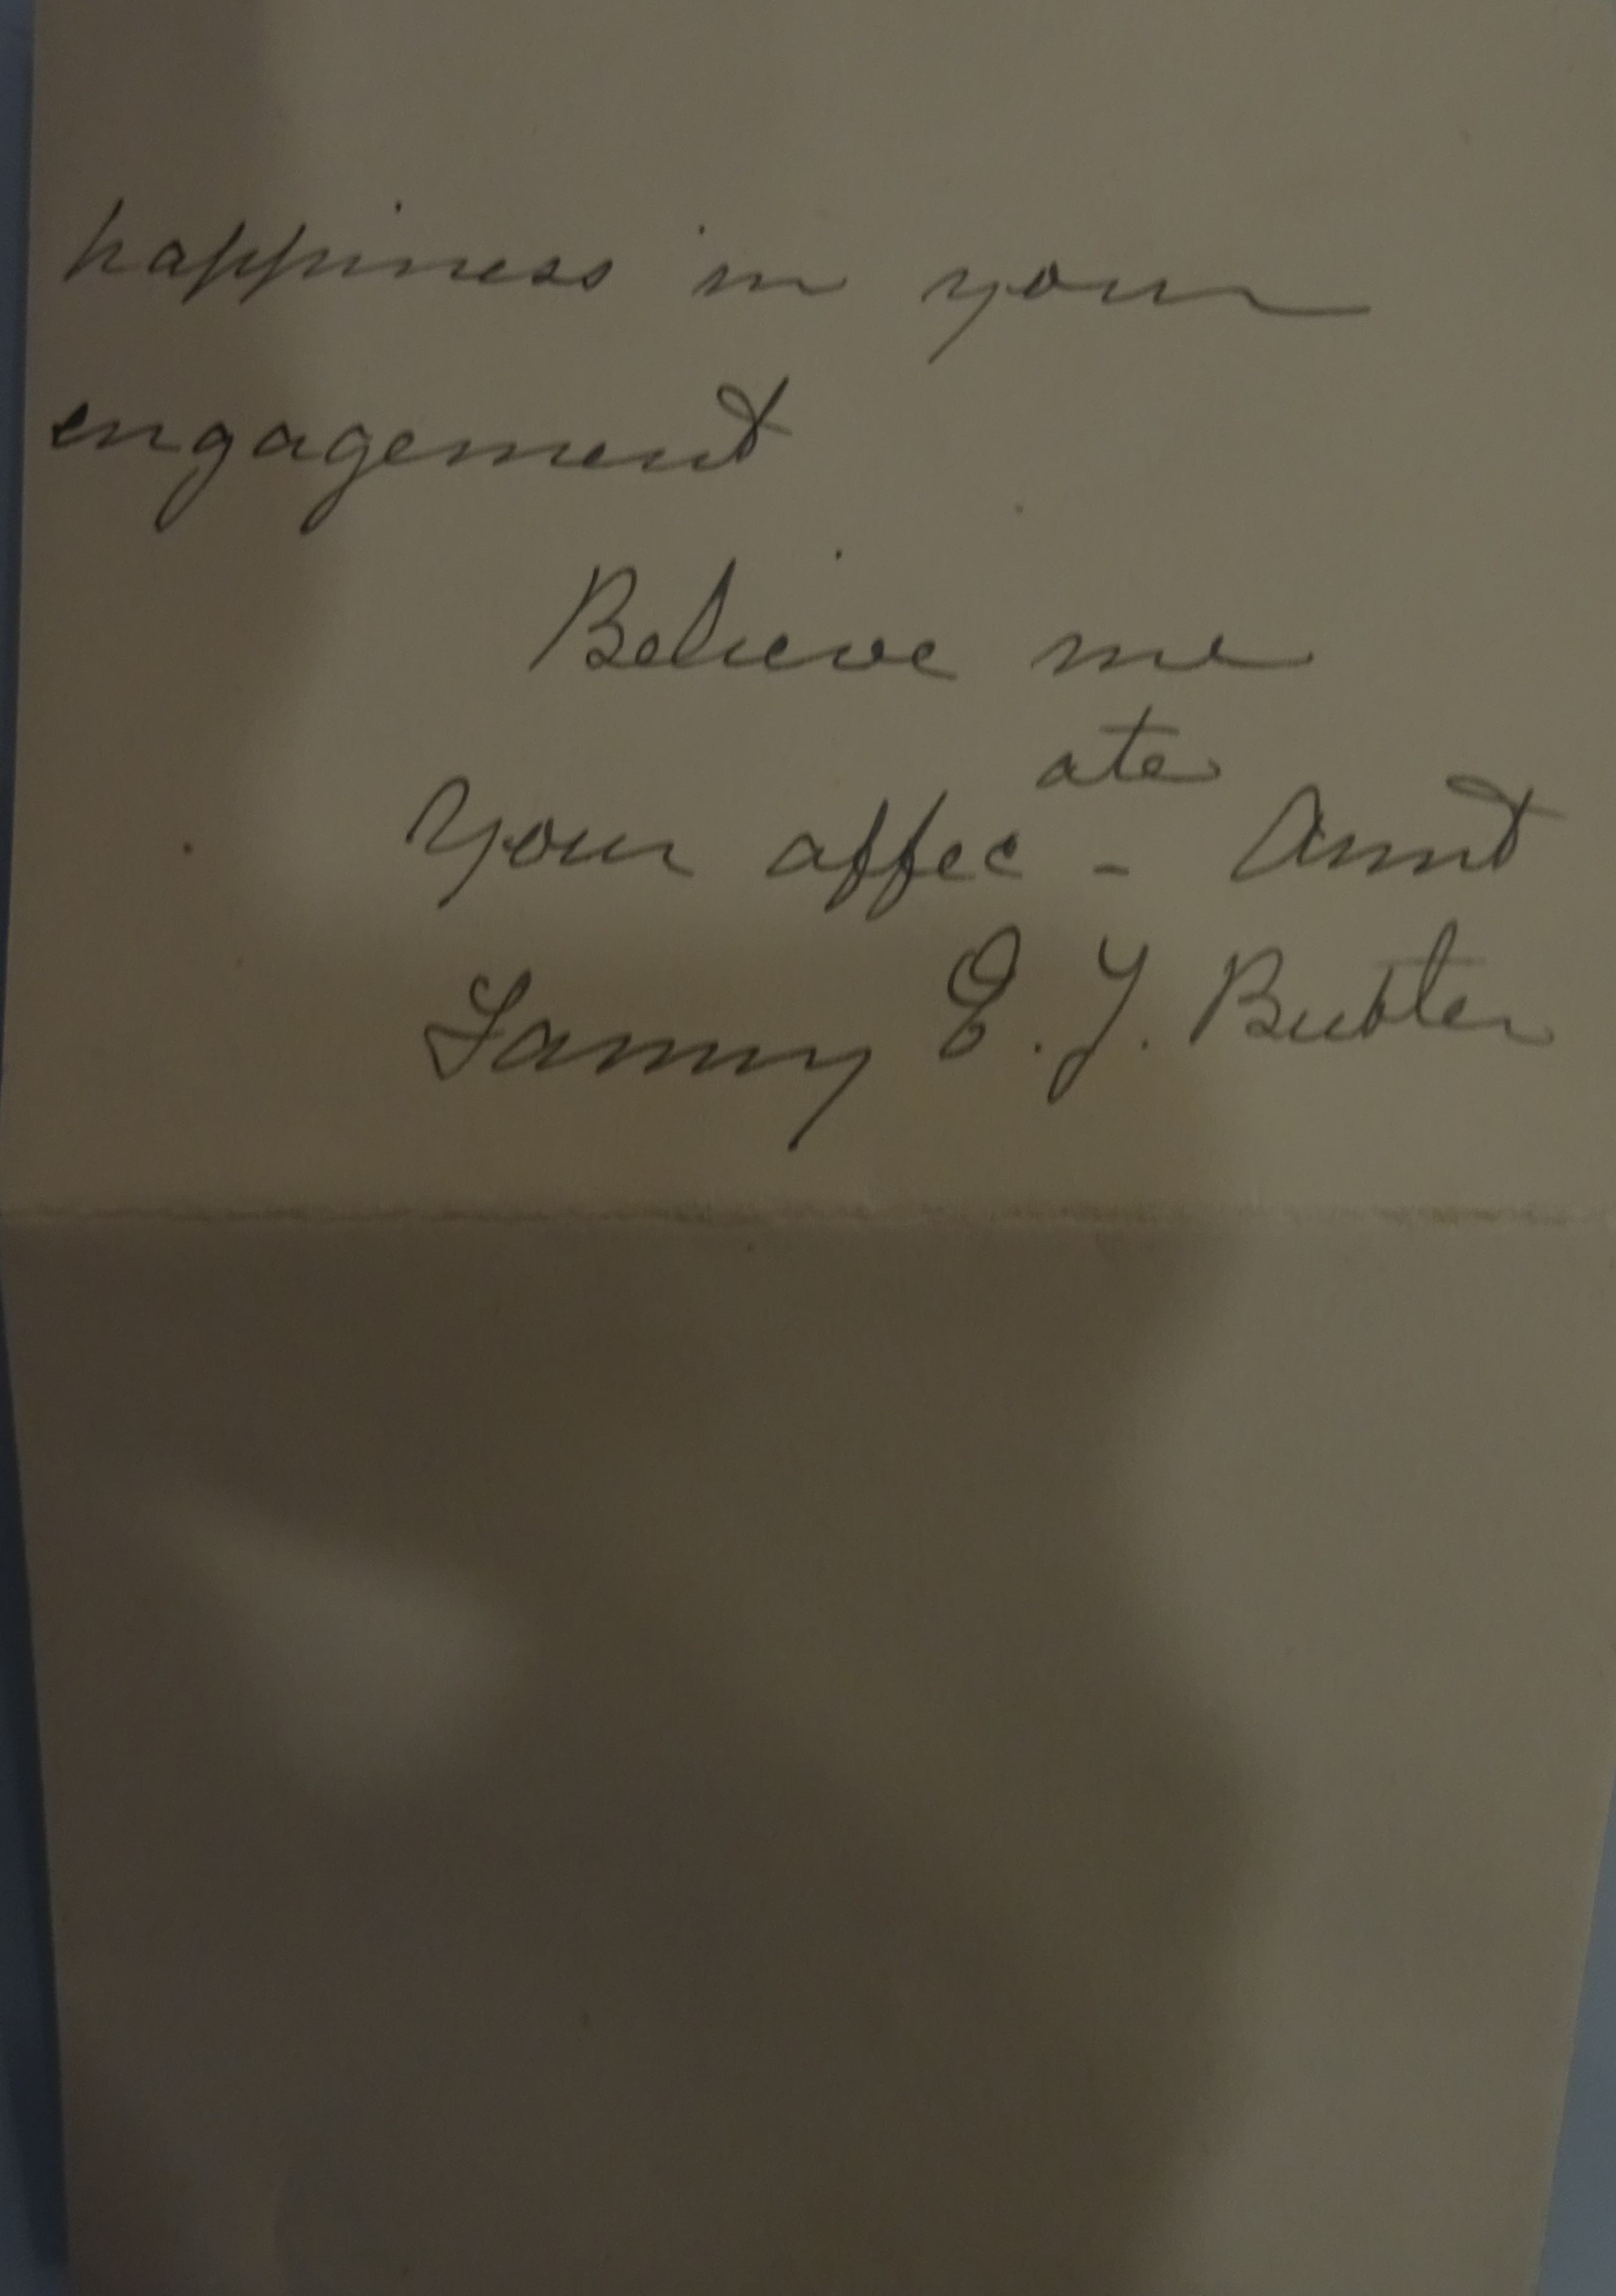 happiness in your
engagement
Believe me
Your affec - ate Aunt
Fanny E. J.